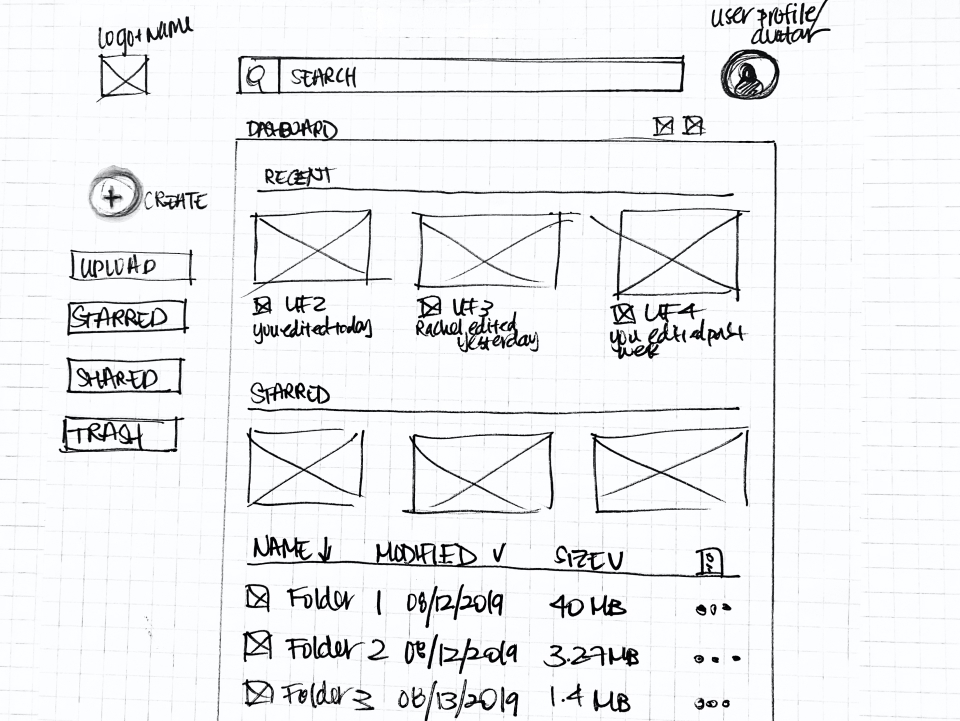 Logo + NAME
user profile/
avatar
SEARCH
DASHBOARD
RECENT
+ CREATE
UPLOAD
STARRED
SHARED
TRASH
UF2
you edited today
UF3
Rachel edited
yesterday
UF4
you edited past
week
STARRED
NAME ↓ MODIFIED ∨ SIZE ∨
Folder 1 08/12/2019 40 MB ...
Folder 2 08/12/2019 3.27 MB ...
Folder 3 08/13/2019 1.4 MB ...